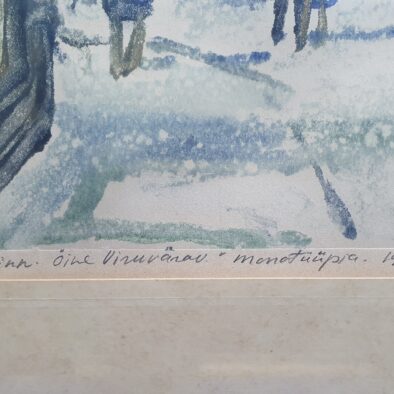 inn. Öine Viruvärav." monotüüpia. 19